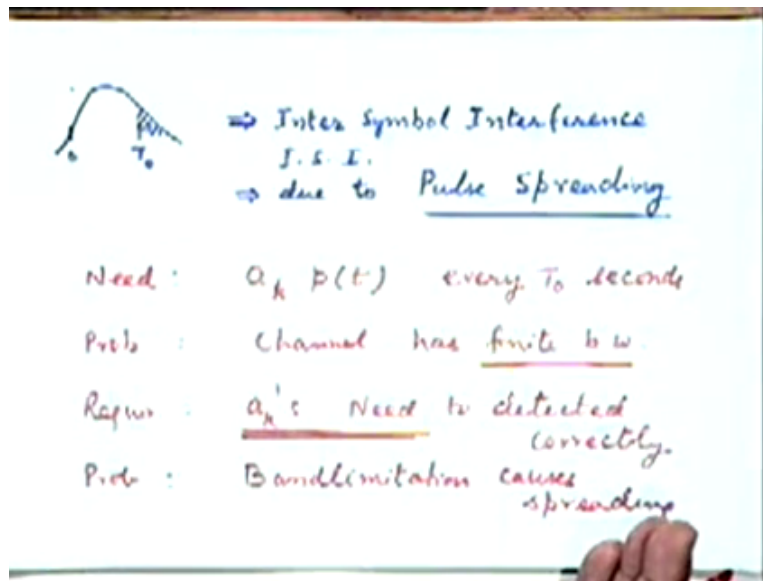 0 T₀
⇒ Inter Symbol Interference
I.S.I.
⇒ due to Pulse Spreading
Need : aₖ p(t) every T₀ seconds
Prob : Channel has finite bw
Requir : aₖ's Need to detected
correctly.
Prob : Bandlimitation causes
spreading